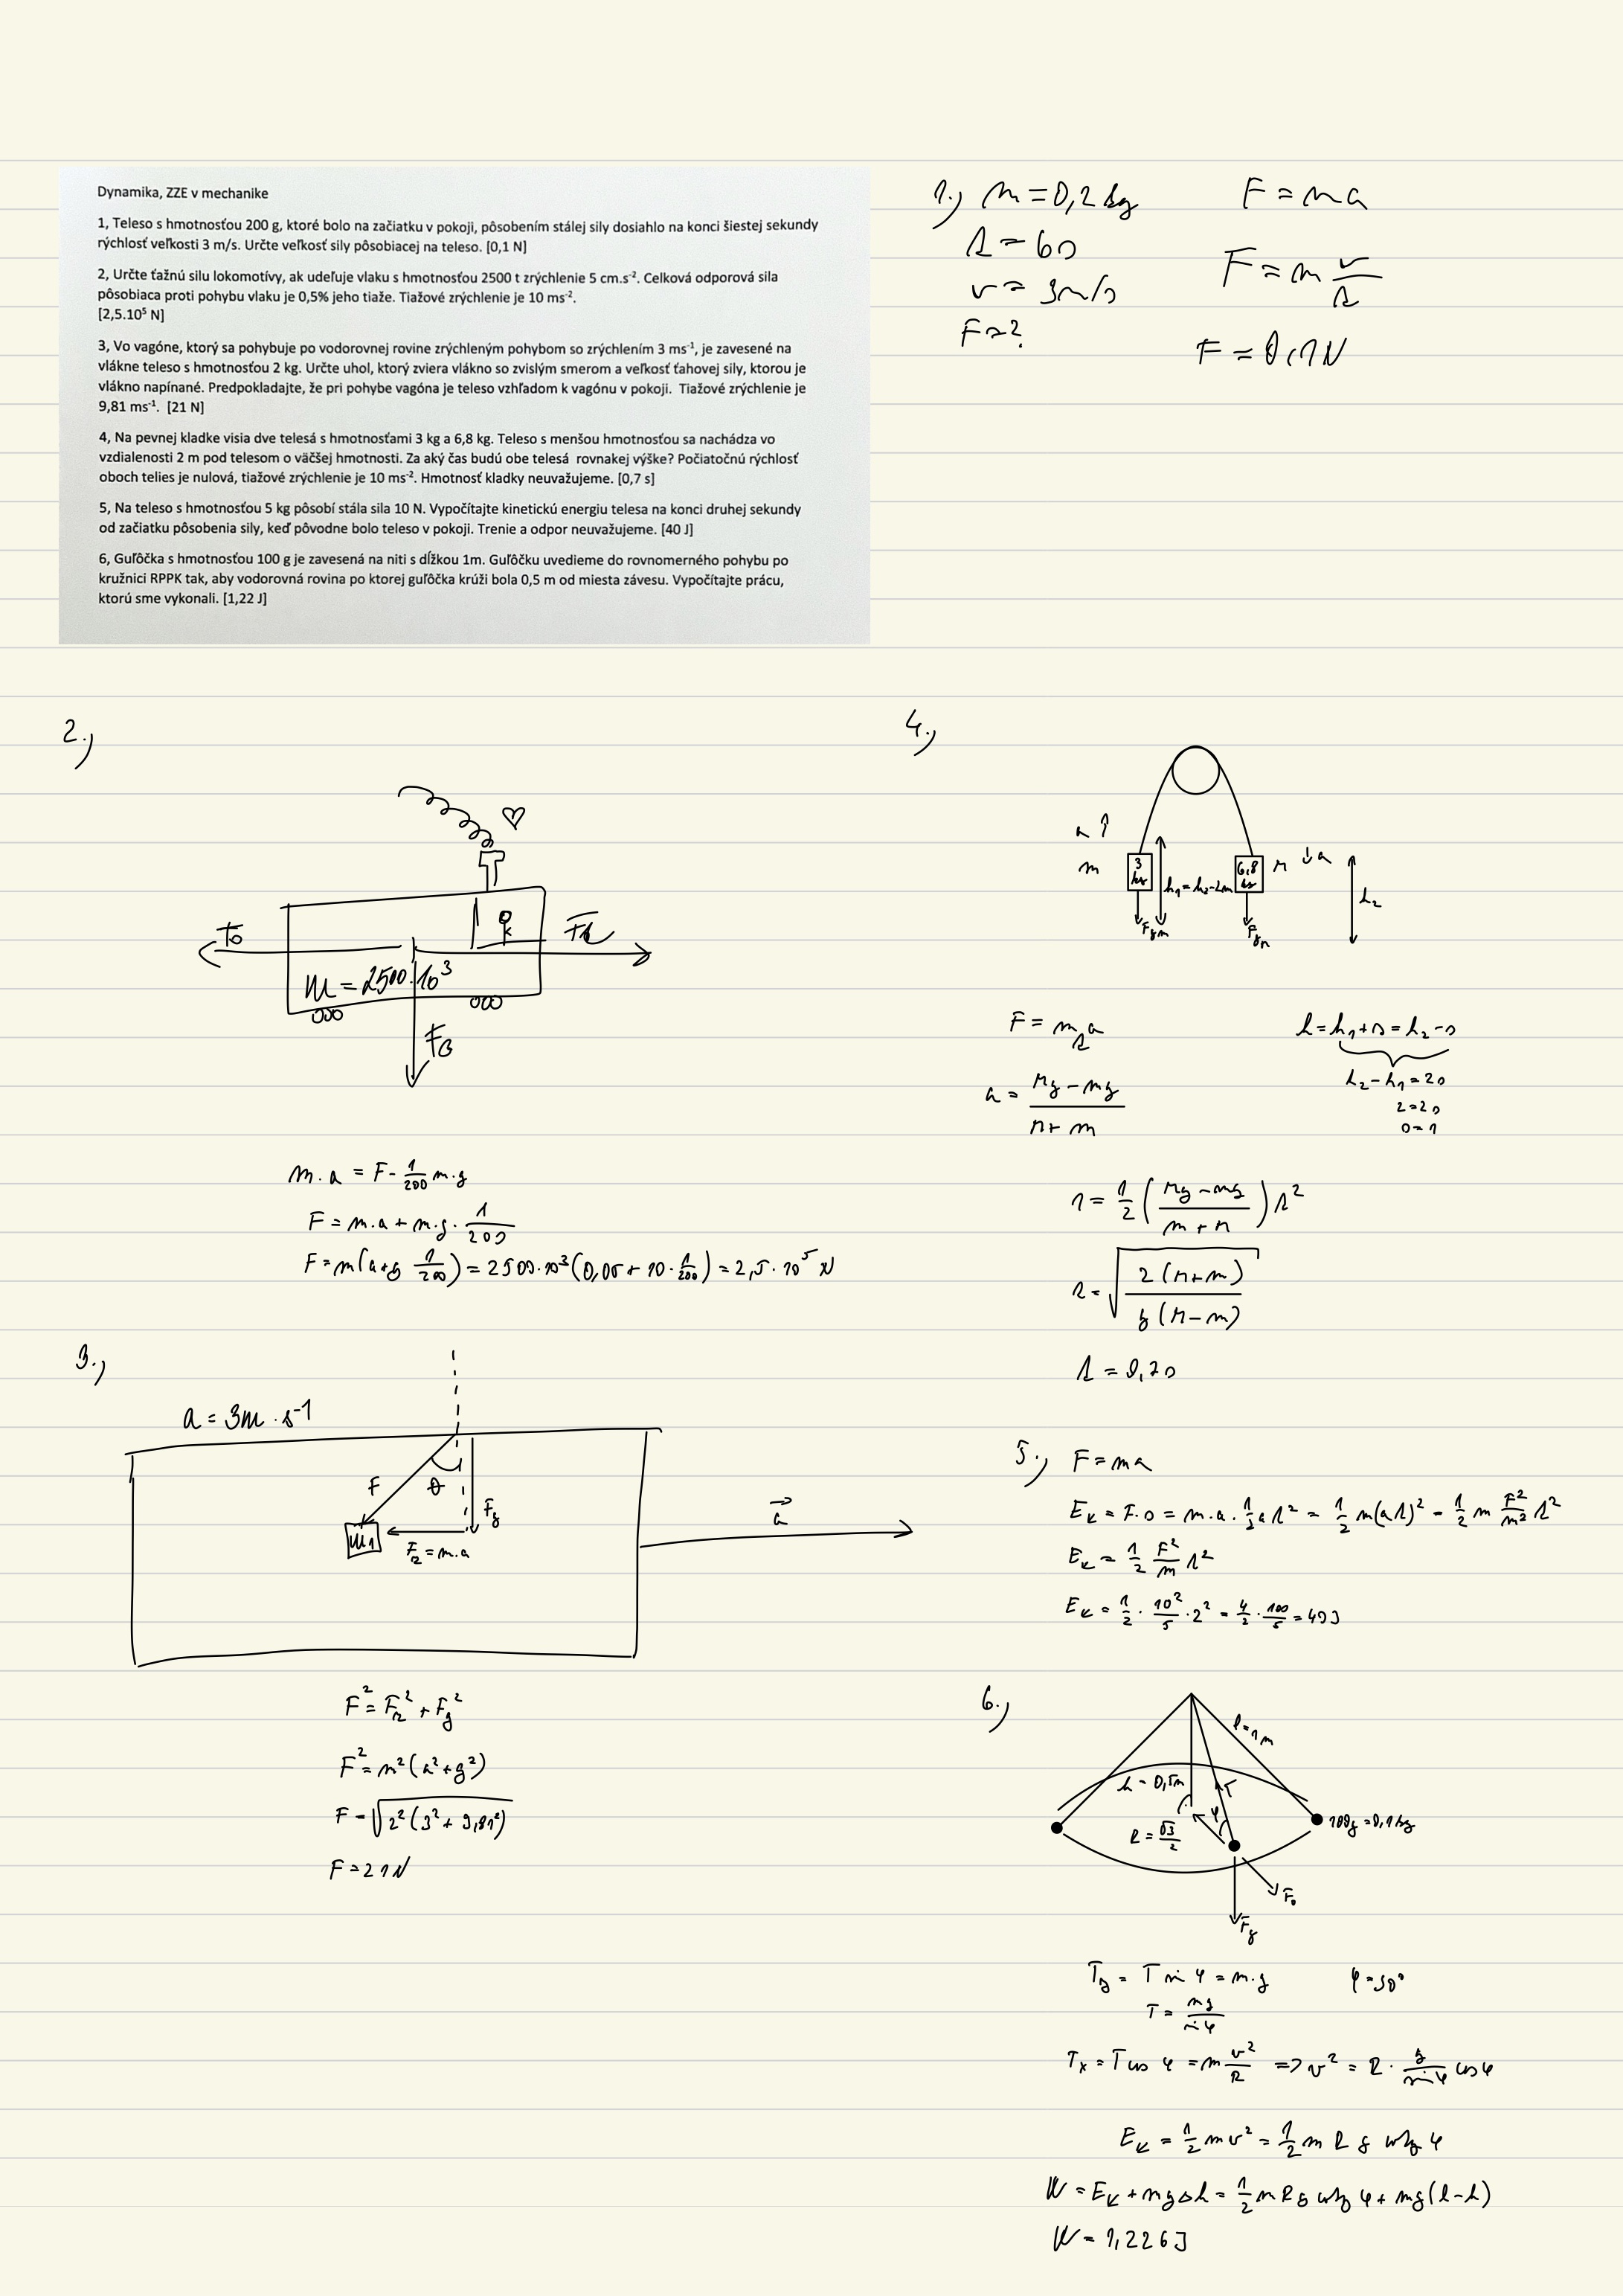 Dynamika, ZZE v mechanike
1, Teleso s hmotnosťou 200 g, ktoré bolo na začiatku v pokoji, pôsobením stálej sily dosiahlo na konci šiestej sekundy
rýchlosť veľkosti 3 m/s. Určte veľkosť sily pôsobiacej na teleso. [0,1 N]
2, Určte ťažnú silu lokomotívy, ak udeľuje vlaku s hmotnosťou 2500 t zrýchlenie 5 cm.s⁻². Celková odporová sila
pôsobiaca proti pohybu vlaku je 0,5% jeho tiaže. Tiažové zrýchlenie je 10 ms⁻².
[2,5.10⁵ N]
3, Vo vagóne, ktorý sa pohybuje po vodorovnej rovine zrýchleným pohybom so zrýchlením 3 ms⁻¹, je zavesené na
vlákne teleso s hmotnosťou 2 kg. Určte uhol, ktorý zviera vlákno so zvislým smerom a veľkosť ťahovej sily, ktorou je
vlákno napínané. Predpokladajte, že pri pohybe vagóna je teleso vzhľadom k vagónu v pokoji. Tiažové zrýchlenie je
9,81 ms⁻¹. [21 N]
4, Na pevnej kladke visia dve telesá s hmotnosťami 3 kg a 6,8 kg. Teleso s menšou hmotnosťou sa nachádza vo
vzdialenosti 2 m pod telesom o väčšej hmotnosti. Za aký čas budú obe telesá rovnakej výške? Počiatočnú rýchlosť
oboch telies je nulová, tiažové zrýchlenie je 10 ms⁻². Hmotnosť kladky neuvažujeme. [0,7 s]
5, Na teleso s hmotnosťou 5 kg pôsobí stála sila 10 N. Vypočítajte kinetickú energiu telesa na konci druhej sekundy
od začiatku pôsobenia sily, keď pôvodne bolo teleso v pokoji. Trenie a odpor neuvažujeme. [40 J]
6, Guľôčka s hmotnosťou 100 g je zavesená na niti s dĺžkou 1m. Guľôčku uvedieme do rovnomerného pohybu po
kružnici RPPK tak, aby vodorovná rovina po ktorej guľôčka krúži bola 0,5 m od miesta závesu. Vypočítajte prácu,
ktorú sme vykonali. [1,22 J]
1.) m = 0,2 kg
t = 6s
v = 3m/s
F = ?
F = ma
F = m v/t
F = 0,1N
2.)
Fo
m = 2500.10³
FG
m.a = F - 1/200 m.g
F = m.a + m.g . 1/200
F = m(a+g 1/200) = 2500.10³(0,05 + 10 . 1/200) = 2,5 . 10⁵ N
3.)
a = 3m . s⁻¹
F
θ
Fg
m₁
Fz = m.a
a⃗
F² = Fz² + Fg²
F² = m²(a²+g²)
F = √(2²(3² + 9,81²))
F = 21N
4.)
a ↑
m
3 kg
h₁ = h₂-2m
6,8 kg
M
↓a
h₂
Fgm
FgM
a = (Mg - mg)/(M + m)
h = h₁+s = h₂-s
h₂ - h₁ = 2s
2 = 2s
s = 1
1 = 1/2 ((Mg - mg)/(m + M)) t²
t = √(2(M+m)/g(M-m))
t = 0,7s
5.) F = ma
Ek = F.s = m.a . 1/2 a t² = 1/2 m(at)² = 1/2 m F²/m² t²
Ek = 1/2 F²/m t²
Ek = 1/2 . 10²/5 . 2² = 4/2 . 100/5 = 40J
6.)
l = 1m
h = 0,5m
T
φ
R = √3/2
100g = 0,1kg
Fo
Fg
Ty = T sin φ = m.g
φ = 30°
T = mg/sin φ
Tx = T cos φ = m v²/R => v² = R . g/sin φ cos φ
Ek = 1/2 mv² = 1/2 m R g cotg φ
W = Ek + mgΔh = 1/2 m R g cotg φ + mg(l-h)
W = 1,226J